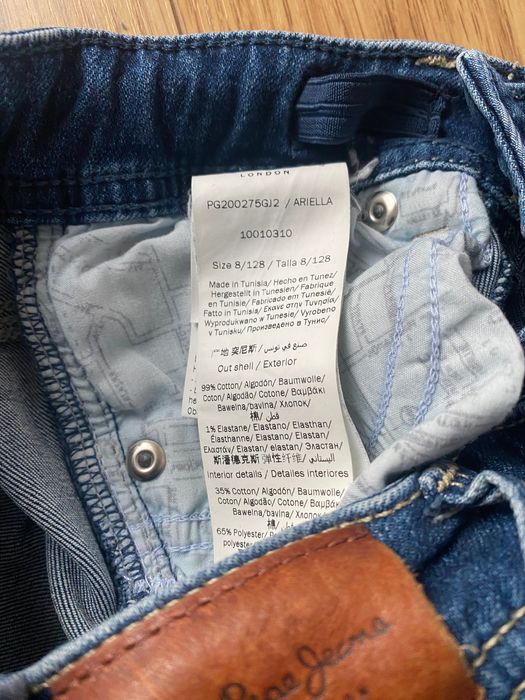 LONDON
PG200275GJ2 / ARIELLA
10010310
Size 8/128 / Talla 8/128
Made in Tunisia/ Hecho en Tunez/
Hergestellt in Tunesien/ Fabriqué
en Tunisie/ Fabricado em Tunesië/
Fatto in Tunisia/ Εκανε στην Τυνησία/
Wyprodukowano w Tunezie/ Vyrobeno
v Tunisku/ Произведено в Тунис/
产地 突尼斯/ صنع في تونس/
Out shell / Exterior
99% Cotton/ Algodón/ Baumwolle/
Coton/ Algodão/ Cotone/ Βαμβάκι
Bawełna/bavlna/ Хлопок/
棉/ قطن/
1% Elastane/ Elastano/ Elasthan/
Élasthanne/ Elastano/ Elastan/
Ελαστάν/ Elastan/ elastan/ Эластан/
斯潘德克斯 弹性纤维/ اليستاني/
Interior details / Detalles interiores
35% Cotton/ Algodón/ Baumwolle/
Coton/ Algodão/ Cotone/ Βαμβάκι
Bawełna/bavlna/ Хлопок/
棉/ قطن/
65% Polyester/
polyester
Pepe Jeans